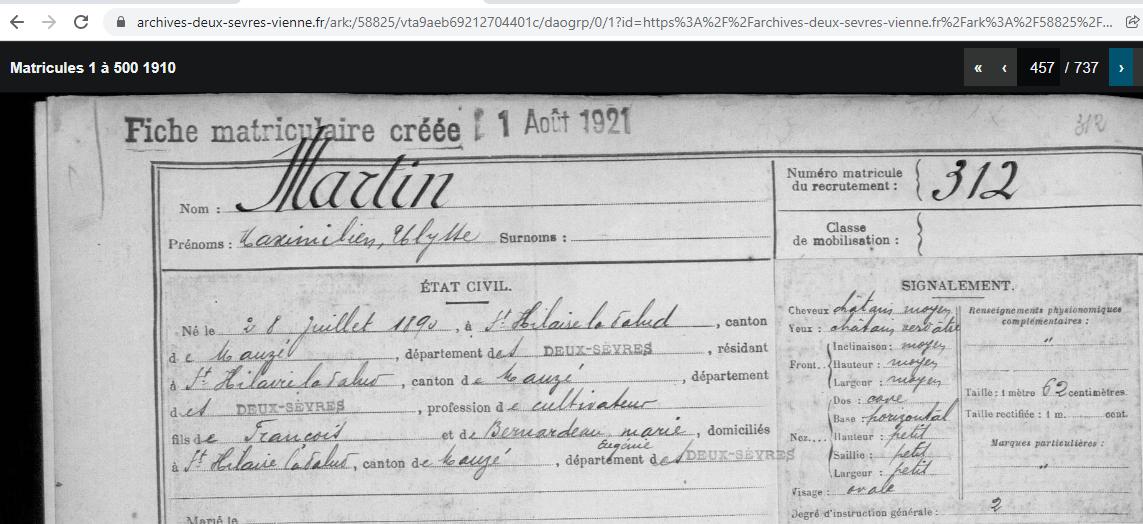 archives-deux-sevres-vienne.fr/ark:/58825/vta9aeb69212704401c/daogrp/0/1?id=https%3A%2F%2Farchives-deux-sevres-vienne.fr%2Fark%3A%2F58825%2F...
Matricules 1 à 500 1910
« ‹ 457 / 737 ›
Fiche matriculaire créée 1 Août 1921
312
Nom : Martin
Prénoms : Maximilien, Ulysse Surnoms :
Numéro matricule
du recrutement : 312
Classe
de mobilisation :
ÉTAT CIVIL.
Né le 28 juillet 1890, à St Hilaire la Palud, canton
de Mauzé, département des DEUX-SÈVRES, résidant
à St Hilaire la Palud, canton de Mauzé, département
des DEUX-SÈVRES, profession de cultivateur
fils de François et de Bernardeau marie, domiciliés
Eugénie
à St Hilaire la Palud, canton de Mauzé, département des DEUX-SÈVRES
Marié le
SIGNALEMENT.
Cheveux châtain moyen
Yeux : châtain verdâtre
Front.. Inclinaison : moyen
Hauteur : moyen
Largeur : moyen
Nez.... Dos : cave
Base : horizontal
Hauteur : petit
Saillie : petit
Largeur : petit
Visage : ovale
Degré d'instruction générale : 2
Renseignements physionomiques
complémentaires :
"
Taille : 1 mètre 62 centimètres.
Taille rectifiée : 1 m. cent.
Marques particulières :
"